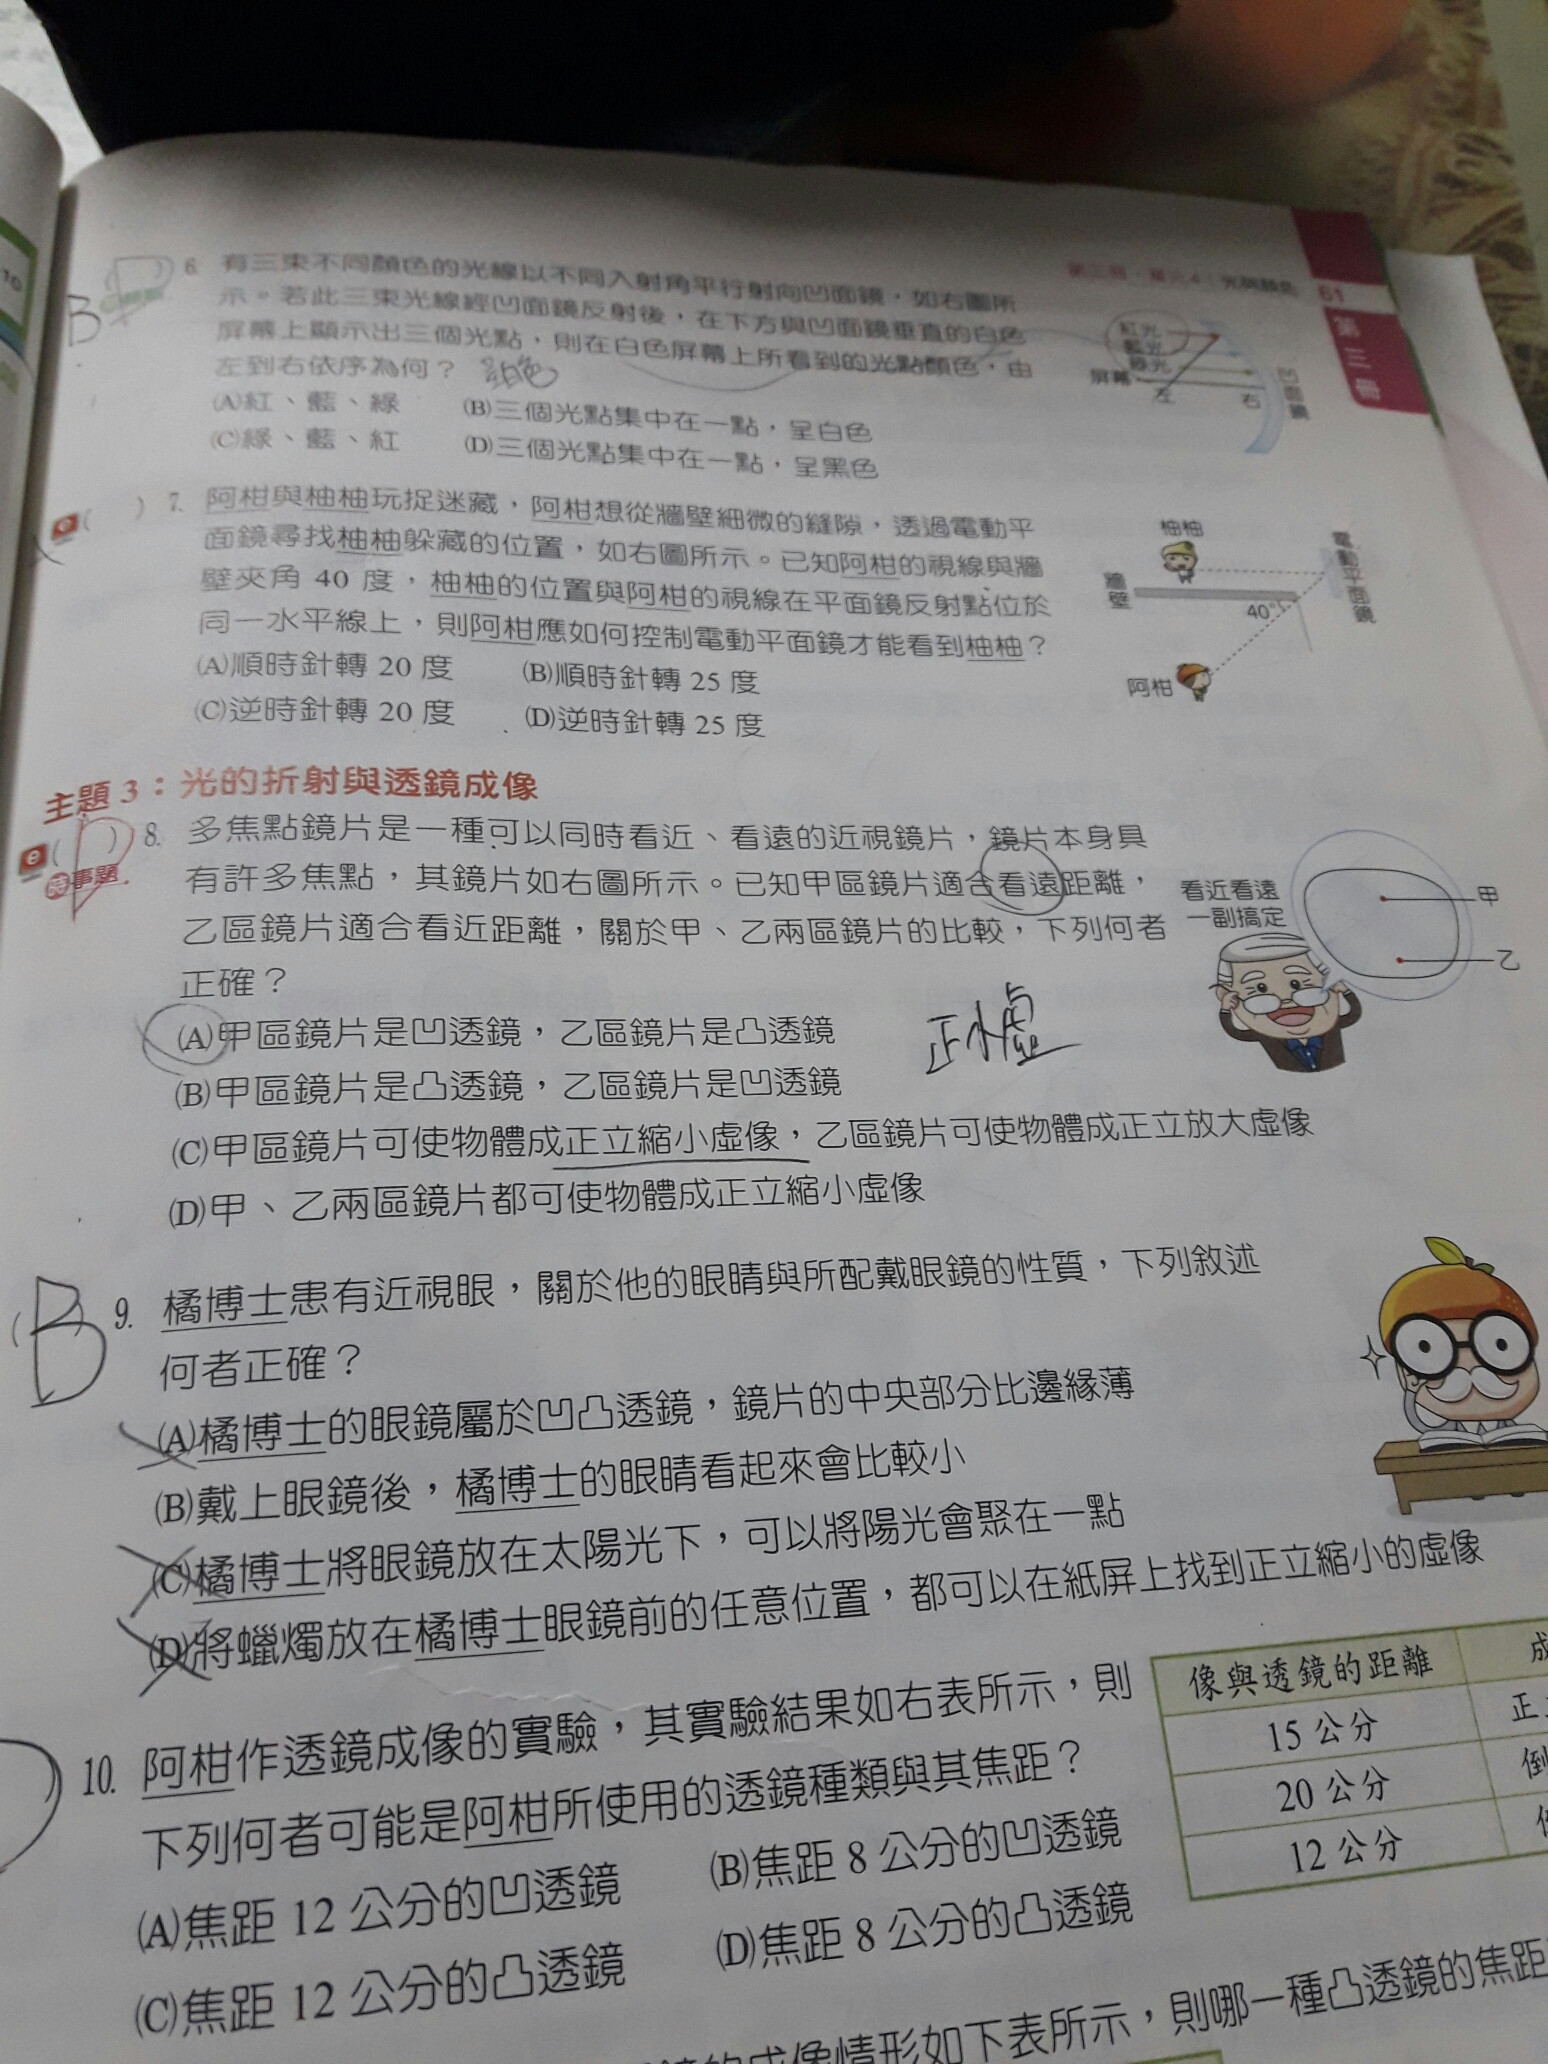 10
第三冊・單元4：光與顏色
61
第三冊
B
6. 有三束不同顏色的光線以不同入射角平行射向凹面鏡，如右圖所
示。若此三束光線經凹面鏡反射後，在下方與凹面鏡垂直的白色
屏幕上顯示出三個光點，則在白色屏幕上所看到的光點顏色，由
左到右依序為何？
(A)紅、藍、綠 (B)三個光點集中在一點，呈白色
(C)綠、藍、紅 (D)三個光點集中在一點，呈黑色
紅光
藍光
綠光
屏幕
左
右
凹面鏡
( ) 7. 阿柑與柚柚玩捉迷藏，阿柑想從牆壁細微的縫隙，透過電動平
面鏡尋找柚柚躲藏的位置，如右圖所示。已知阿柑的視線與牆
壁夾角 40 度，柚柚的位置與阿柑的視線在平面鏡反射點位於
同一水平線上，則阿柑應如何控制電動平面鏡才能看到柚柚？
(A)順時針轉 20 度 (B)順時針轉 25 度
(C)逆時針轉 20 度 (D)逆時針轉 25 度
柚柚
電動平面鏡
牆壁
40°
阿柑
主題 3：光的折射與透鏡成像
(D) 8. 多焦點鏡片是一種可以同時看近、看遠的近視鏡片，鏡片本身具
時事題
有許多焦點，其鏡片如右圖所示。已知甲區鏡片適合看遠距離，
乙區鏡片適合看近距離，關於甲、乙兩區鏡片的比較，下列何者
正確？
(A)甲區鏡片是凹透鏡，乙區鏡片是凸透鏡
(B)甲區鏡片是凸透鏡，乙區鏡片是凹透鏡
(C)甲區鏡片可使物體成正立縮小虛像，乙區鏡片可使物體成正立放大虛像
(D)甲、乙兩區鏡片都可使物體成正立縮小虛像
正小虛
看近看遠
一副搞定
甲
乙
(B) 9. 橘博士患有近視眼，關於他的眼睛與所配戴眼鏡的性質，下列敘述
何者正確？
(A)橘博士的眼鏡屬於凹凸透鏡，鏡片的中央部分比邊緣薄
(B)戴上眼鏡後，橘博士的眼睛看起來會比較小
(C)橘博士將眼鏡放在太陽光下，可以將陽光會聚在一點
(D)將蠟燭放在橘博士眼鏡前的任意位置，都可以在紙屏上找到正立縮小的虛像
) 10. 阿柑作透鏡成像的實驗，其實驗結果如右表所示，則
下列何者可能是阿柑所使用的透鏡種類與其焦距？
(A)焦距 12 公分的凹透鏡 (B)焦距 8 公分的凹透鏡
(C)焦距 12 公分的凸透鏡 (D)焦距 8 公分的凸透鏡
像與透鏡的距離 成
15 公分 正
20 公分 倒
12 公分
的成像情形如下表所示，則哪一種凸透鏡的焦距